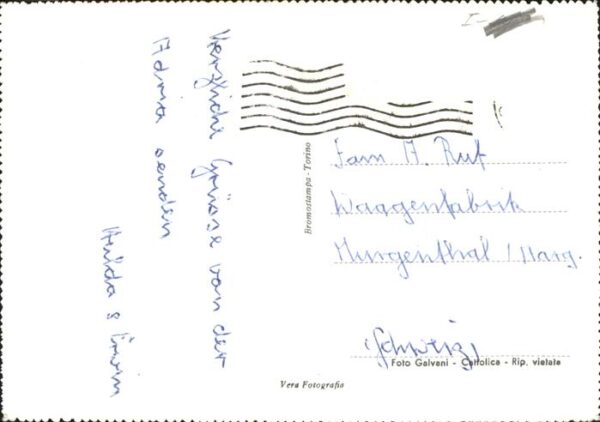 Herzliche Grüsse von der
Adria senden
Hulda & Erwin
Fam A. Ruf
Waagenfabrik
Murgenthal / Aarg.
Schweiz
Bromostampa - Torino
Foto Galvani - Cattolica - Rip. vietate
Vera Fotografia